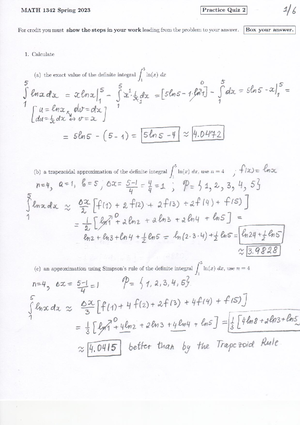 MATH 1342 Spring 2023 Practice Quiz 2 1/6
For credit you must show the steps in your work leading from the problem to your answer. Box your answer.
1. Calculate
(a) the exact value of the definite integral ∫₁⁵ ln(x) dx
∫₁⁵ ln x dx = x ln x |₁⁵ - ∫₁⁵ x · 1/x dx = [5 ln5 - 1·ln1] - ∫₁⁵ dx = 5 ln5 - x |₁⁵ =
[u = ln x, dv = dx
du = 1/x dx, v = x]
= 5 ln5 - (5-1) = 5 ln5 - 4 ≈ 4.0472
(b) a trapezoidal approximation of the definite integral ∫₁⁵ ln(x) dx, use n = 4 , f(x) = ln x
n=4, a=1, b=5, Δx = 5-1/4 = 4/4 = 1 ; P = {1, 2, 3, 4, 5}
∫₁⁵ ln x dx ≈ Δx/2 [f(1) + 2 f(2) + 2 f(3) + 2 f(4) + f(5)] =
= 1/2 [ln1 + 2 ln2 + 2 ln3 + 2 ln4 + ln5] =
= ln2 + ln3 + ln4 + 1/2 ln5 = ln(2·3·4) + 1/2 ln5 = ln24 + 1/2 ln5
≈ 3.9828
(c) an approximation using Simpson's rule of the definite integral ∫₁⁵ ln(x) dx, use n = 4
n=4, Δx = 5-1/4 = 1 P = {1, 2, 3, 4, 5}
∫₁⁵ ln x dx ≈ Δx/3 [f(1) + 4 f(2) + 2 f(3) + 4 f(4) + f(5)] =
= 1/3 [ln1 + 4 ln2 + 2 ln3 + 4 ln4 + ln5] = 1/3 [4 ln8 + 2 ln3 + ln5
≈ 4.0415 better than by the Trapezoid Rule